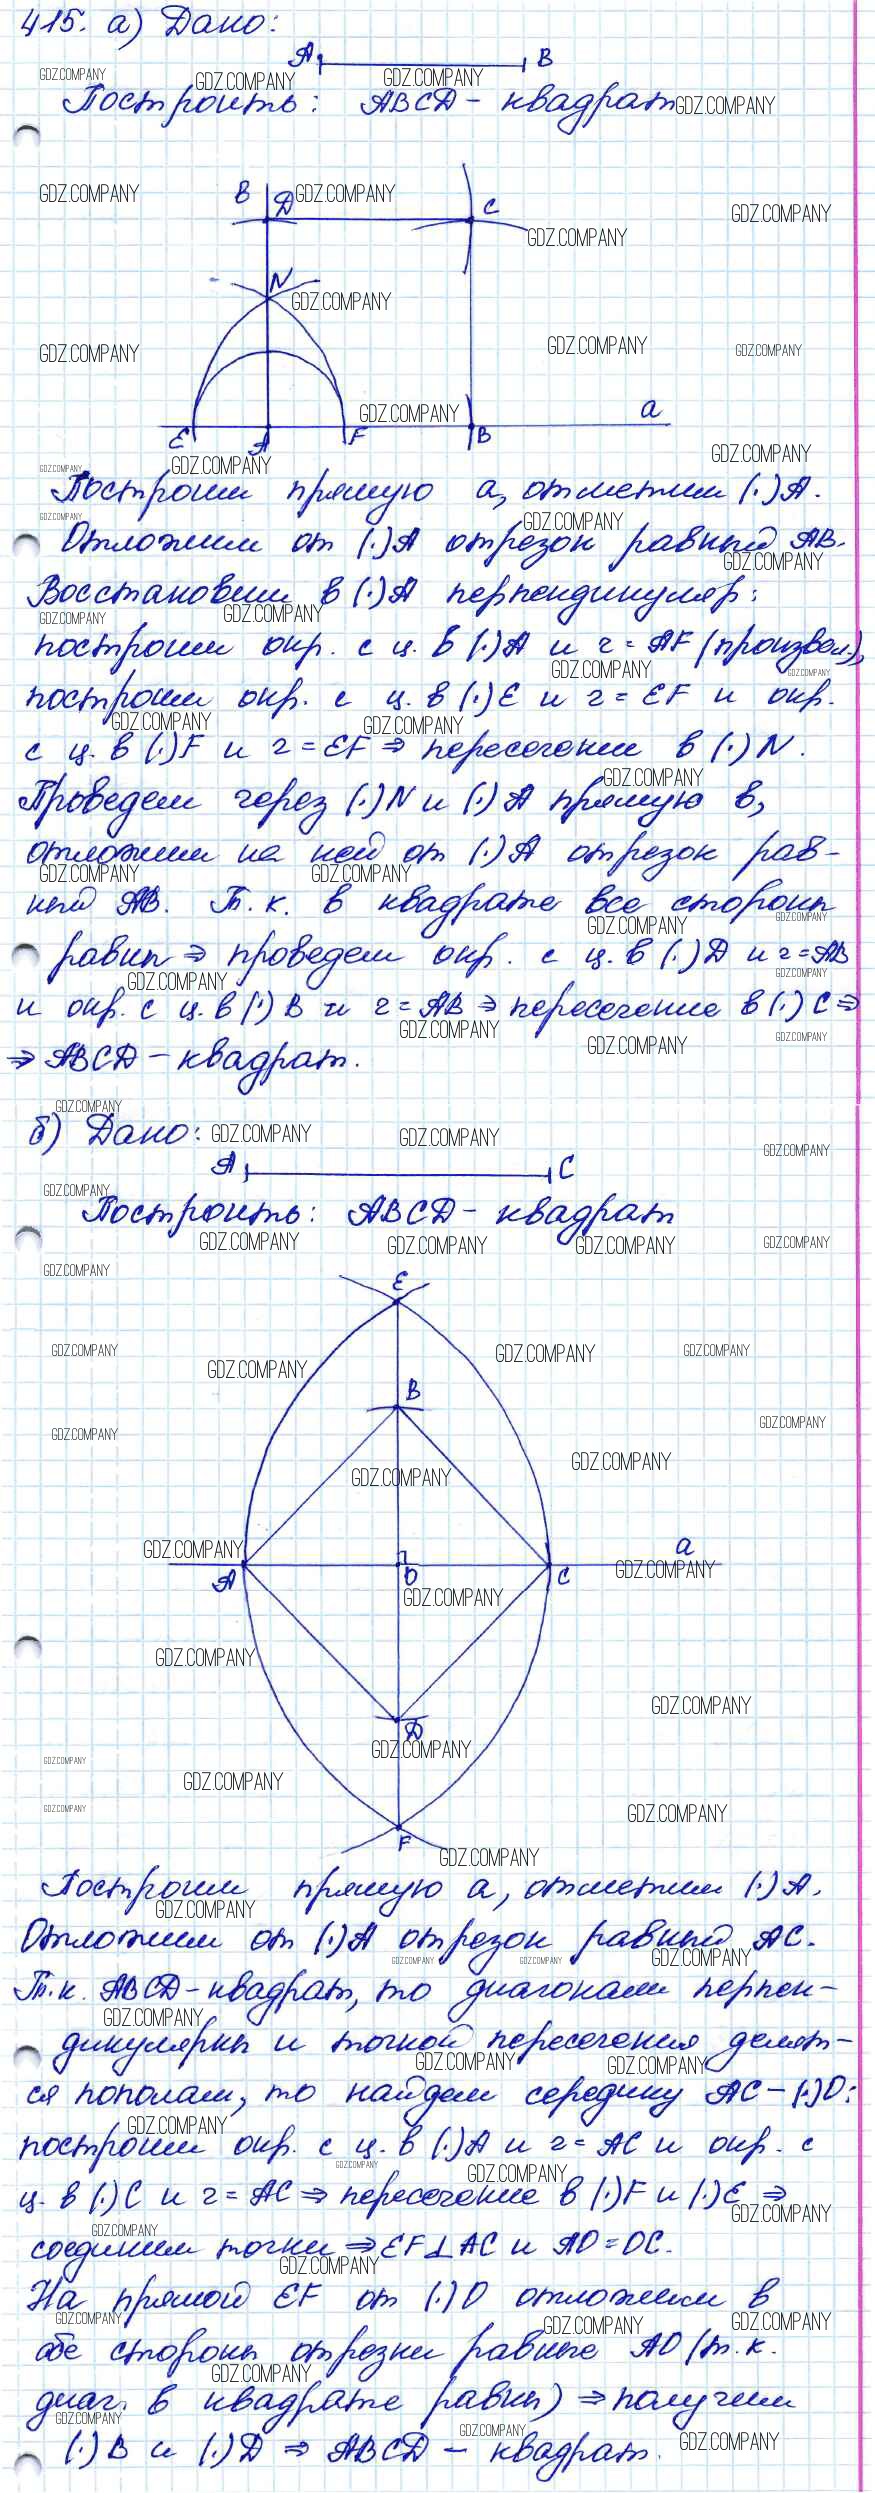 415. а) Дано:
А В
Построить: ABCD - квадрат
В D C
N
a
E A F B
Построим прямую а, отметим (·)А.
Отложим от (·)А отрезок равный АВ.
Восстановим в (·)А перпендикуляр:
построим окр. с ц. в (·)А и r = AF (произвол.),
построим окр. с ц. в (·)Е и r = EF и окр.
с ц. в (·)F и r = EF ⇒ пересечении в (·)N.
Проведем через (·)N и (·)А прямую в,
отложим на ней от (·)А отрезок рав-
ный АВ. Т.к. в квадрате все стороны
равны ⇒ проведем окр. с ц. в (·)D и r = AB
и окр. с ц. в (·)В и r = AB ⇒ пересечение в (·)С ⇒
⇒ ABCD - квадрат.
б) Дано:
А С
Построить: ABCD - квадрат
E
B
a
A O C
D
F
Построим прямую а, отметим (·)А.
Отложим от (·)А отрезок равный АС.
Т.к. ABCD - квадрат, то диагонали перпен-
дикулярны и точкой пересечения делят-
ся пополам, то найдем середину АС - (·)О:
построим окр. с ц. в (·)А и r = AC и окр. с
ц. в (·)С и r = AC ⇒ пересечение в (·)F и (·)E ⇒
соединим точки ⇒ EF⊥AC и AO = OC.
На прямой EF от (·)О отложим в
обе стороны отрезки равные АО (т.к.
диаг. в квадрате равны) ⇒ получим
(·)В и (·)D ⇒ ABCD - квадрат.
GDZ.COMPANY